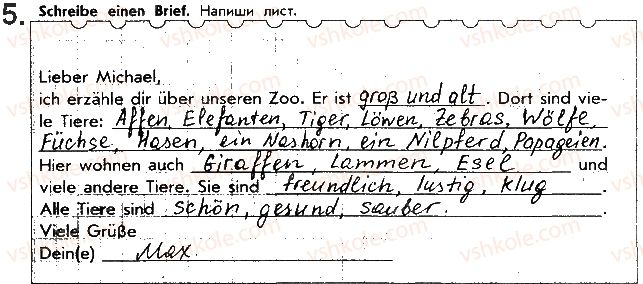 5. Schreibe einen Brief. Напиши лист.
Lieber Michael,
ich erzähle dir über unseren Zoo. Er ist groß und alt. Dort sind vie-
le Tiere: Affen, Elefanten, Tiger, Löwen, Zebras, Wölfe,
Füchse, Hasen, ein Nashorn, ein Nilpferd, Papageien.
Hier wohnen auch Giraffen, Lammen, Esel und
viele andere Tiere. Sie sind freundlich, lustig, klug.
Alle Tiere sind schön, gesund, sauber.
Viele Grüße
Dein(e) Max